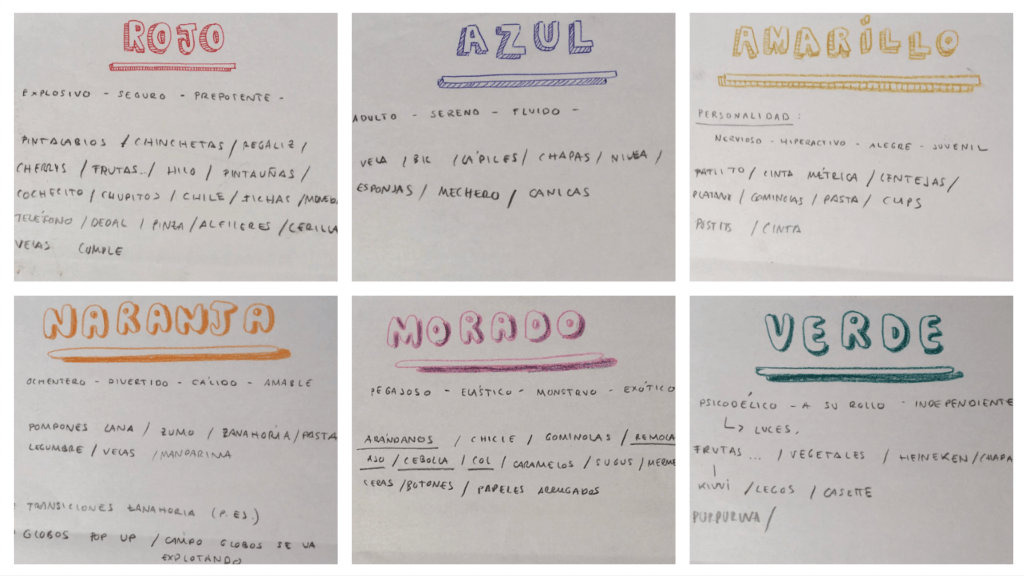 ROJO
EXPLOSIVO - SEGURO - PREPOTENTE -
PINTALABIOS / CHINCHETAS / REGALIZ /
CHERRYS / FRUTAS.. / HILO / PINTAUÑAS /
COCHECITO / CHUPITOS / CHILE / FICHAS /
TELÉFONO / DEDAL / PINZA / ALFILERES / CERILLA
VELAS CUMPLE
AZUL
ADULTO - SERENO - FLUIDO -
VELA / BIC / LÁPICES / CHAPAS / NIVEA /
ESPONJAS / MECHERO / CANICAS
AMARÍLLO
PERSONALIDAD :
NERVIOSO - HIPERACTIVO - ALEGRE - JUVENIL
PATITO / CINTA MÉTRICA / LENTEJAS /
PLATANO / GOMINOLAS / PASTA / CLIPS
POSTITS / CINTA
NARANJA
OCHENTERO - DIVERTIDO - CÁLIDO - AMABLE
POMPONES LANA / ZUMO / ZANAHORIA / PASTA
LEGUMBRE / VELAS / MANDARINA
TRANSICIONES ZANAHORIA (P. ES.)
GLOBOS POP UP / CAMPO GLOBOS SE VA
EXPLOTANDO
MORADO
PEGAJOSO - ELÁSTICO - MONSTRUO - EXÓTICO
ARÁNDANOS / CHICLE / GOMINOLAS / REMOLA
AJO / CEBOLLA / COL / CARAMELOS / SUGUS / MERME
CERAS / BOTONES / PAPELES ARRUGADOS
VERDE
PSICODÉLICO - A SU ROLLO - INDEPENDIENTE
LUCES.
FRUTAS ... / VEGETALES / HEINEKEN / CHAPA
KIWI / LEGOS / CASETTE
PURPURINA /